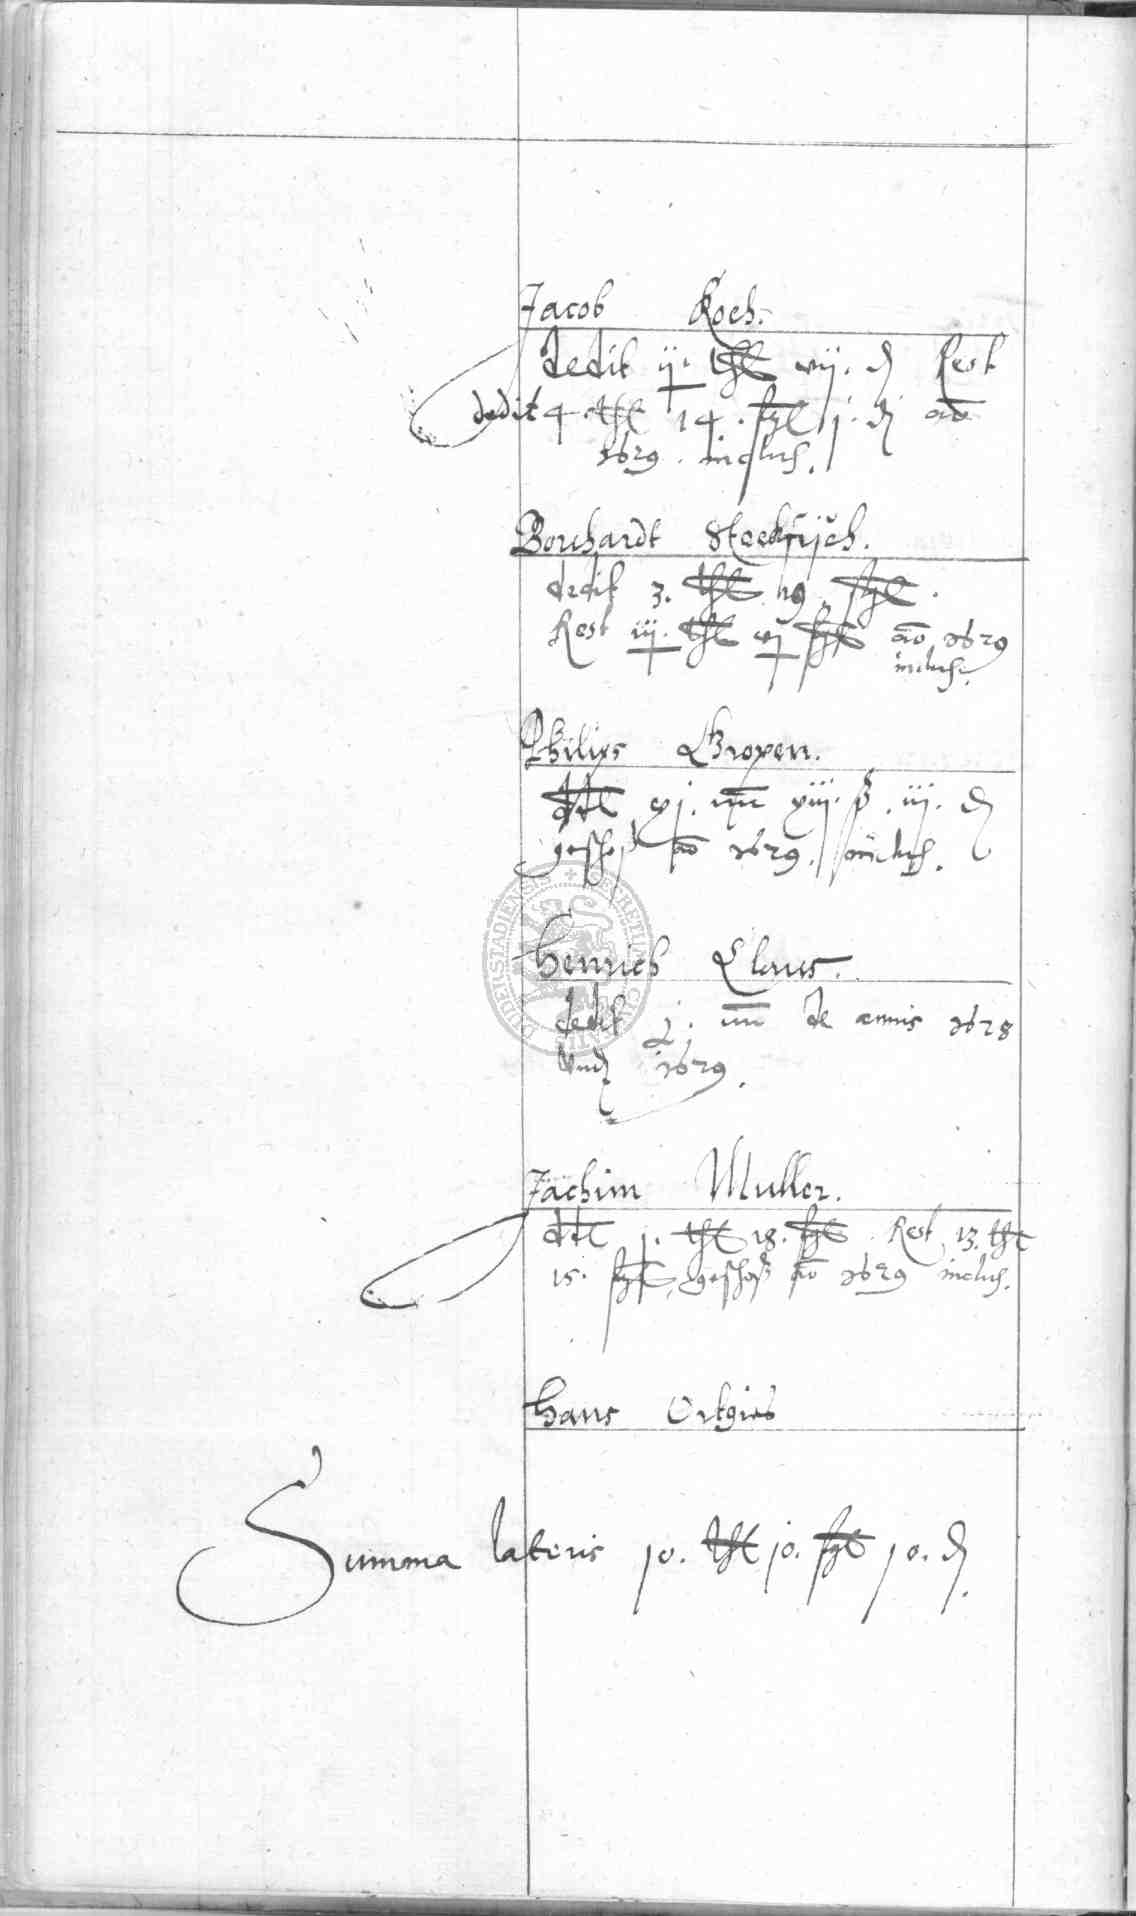 Jacob Koch.
dedit ij. thl vij. d Rest
dedit 4. thl 14. sgl j. d ao
1629. inclus.
Borchardt
dedit 3. thl 19 sgl.
Rest iij. thl vj sgl ao 1629
inclus.
Philips Gropen.
dtl xj. mr xiij. ß. iij. d
geschoß ao 1629. inclus.
Henrich Claus.
dedit j. mr de annis 1628
Und 1629.
Jachim Muller.
dtl j. thl 18. sgl Rest 13. thl
15. sgl geschoß ao 1629 inclus.
Hans Ortgies
Summa lateris 10. thl 10. sgl 10. d